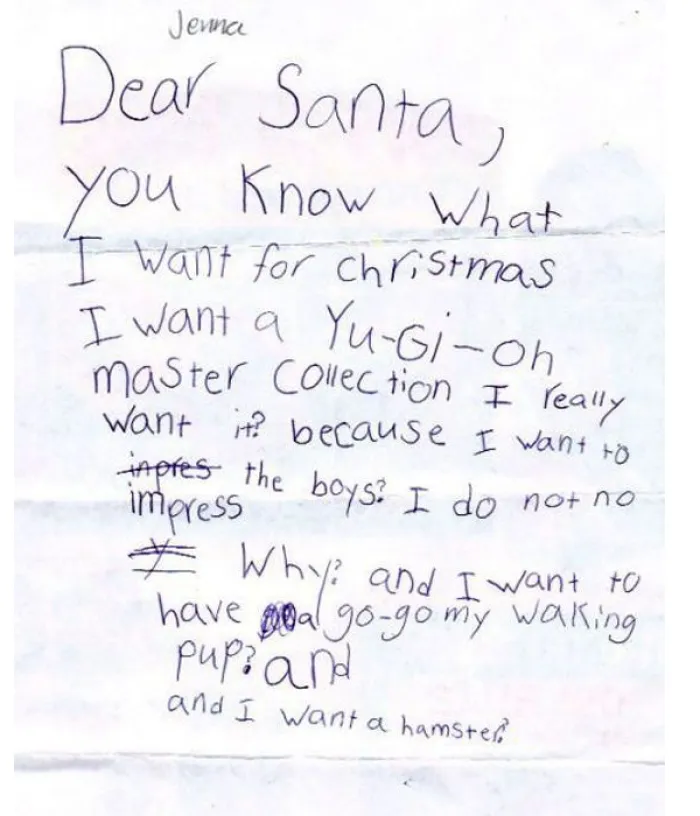 Jenna
Dear Santa,
you know what
I want for christmas
I want a Yu-Gi-Oh
master collection I really
want it? because I want to
inpres the boys? I do not no
impress
y Why? and I want to
have a go-go my waking
pup? and
and I want a hamster?